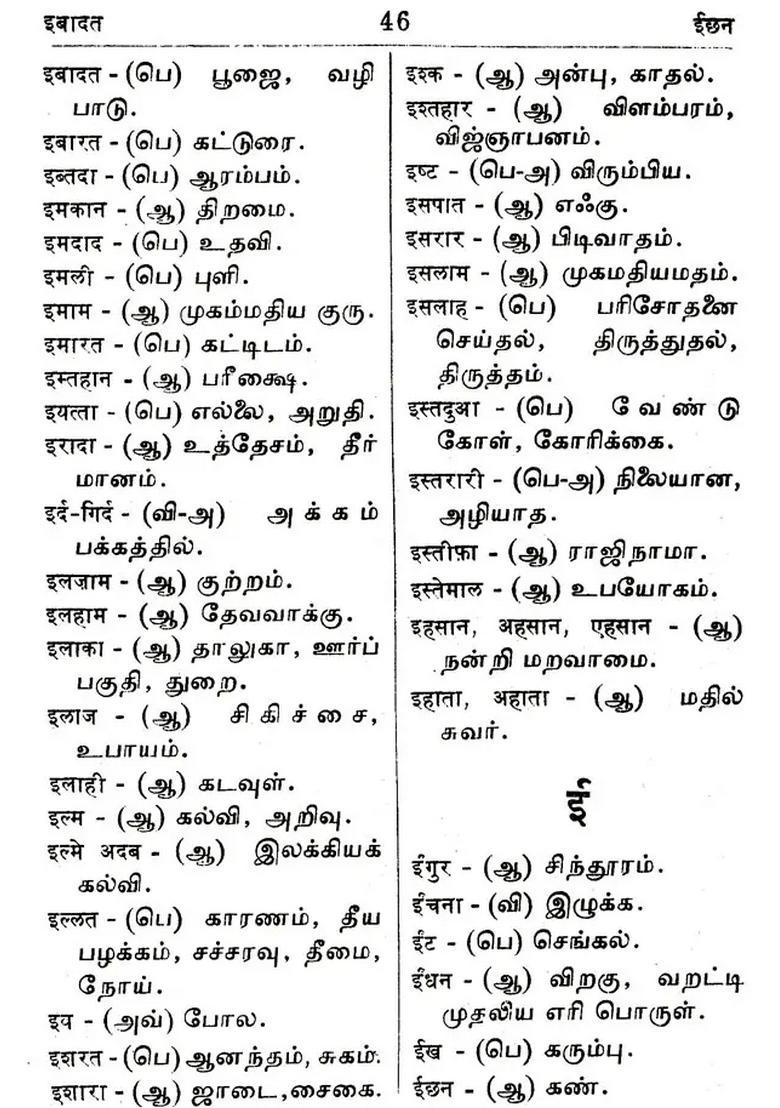 इबादत 46 ईछन
इबादत - (பெ) பூஜை, வழி
பாடு.
इबारत - (பெ) கட்டுரை.
इब्तदा - (பெ) ஆரம்பம்.
इमकान - (ஆ) திறமை.
इमदाद - (பெ) உதவி.
इमली - (பெ) புளி.
इमाम - (ஆ) முகம்மதிய குரு.
इमारत - (பெ) கட்டிடம்.
इम्तहान - (ஆ) பரீக்ஷை.
इयत्ता - (பெ) எல்லை, அறுதி.
इरादा - (ஆ) உத்தேசம், தீர்
மானம்.
इर्द-गिर्द - (வி-அ) அக்கம்
பக்கத்தில்.
इलज़ाम - (ஆ) குற்றம்.
इलहाम - (ஆ) தேவவாக்கு.
इलाका - (ஆ) தாலுகா, ஊர்ப்
பகுதி, துறை.
इलाज - (ஆ) சிகிச்சை,
உபாயம்.
इलाही - (ஆ) கடவுள்.
इल्म - (ஆ) கல்வி, அறிவு.
इल्मे अदब - (ஆ) இலக்கியக்
கல்வி.
इल्लत - (பெ) காரணம், தீய
பழக்கம், சச்சரவு, தீமை,
நோய்.
इव - (அவ்) போல.
इशरत - (பெ) ஆனந்தம், சுகம்.
इशारा - (ஆ) ஜாடை, சைகை.
इश्क - (ஆ) அன்பு, காதல்.
इश्तहार - (ஆ) விளம்பரம்,
விஜ்ஞாபனம்.
इष्ट - (பெ-அ) விரும்பிய.
इसपात - (ஆ) எஃகு.
इसरार - (ஆ) பிடிவாதம்.
इसलाम - (ஆ) முகமதியமதம்.
इसलाह - (பெ) பரிசோதனை
செய்தல், திருத்துதல்,
திருத்தம்.
इस्तदुआ - (பெ) வேண்டு
கோள், கோரிக்கை.
इस्तरारी - (பெ-அ) நிலையான,
அழியாத.
इस्तीफ़ा - (ஆ) ராஜிநாமா.
इस्तेमाल - (ஆ) உபயோகம்.
इहसान, अहसान, एहसान - (ஆ)
நன்றி மறவாமை.
इहाता, अहाता - (ஆ) மதில்
சுவர்.
ई
ईंगुर - (ஆ) சிந்தூரம்.
ईंचना - (வி) இழுக்க.
ईंट - (பெ) செங்கல்.
ईंधन - (ஆ) விறகு, வறட்டி
முதலிய எரி பொருள்.
ईख - (பெ) கரும்பு.
ईछन - (ஆ) கண்.